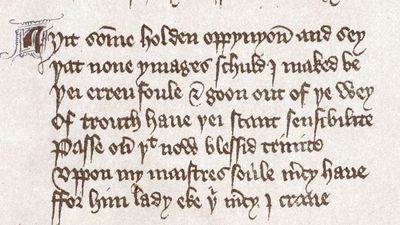 Ayit som̄e holden oppynyon̄ and sey
yat none ymages schuld I maked be
yei erren foule & goon out of ye wey
Of trouth haue yei scant sensibilite
Passe ou̅ yͭ now blessid trinite
Vppon my maistres soule m̄cy haue
ffor him lady eke yⁱ m̄cy I craue